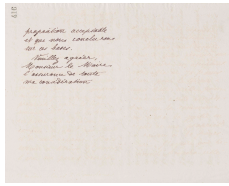 418
proposition acceptable
et que nous conclurons
sur ces bases.
Veuillez agréer,
Monsieur le Maire
l'assurance de toute
ma considération